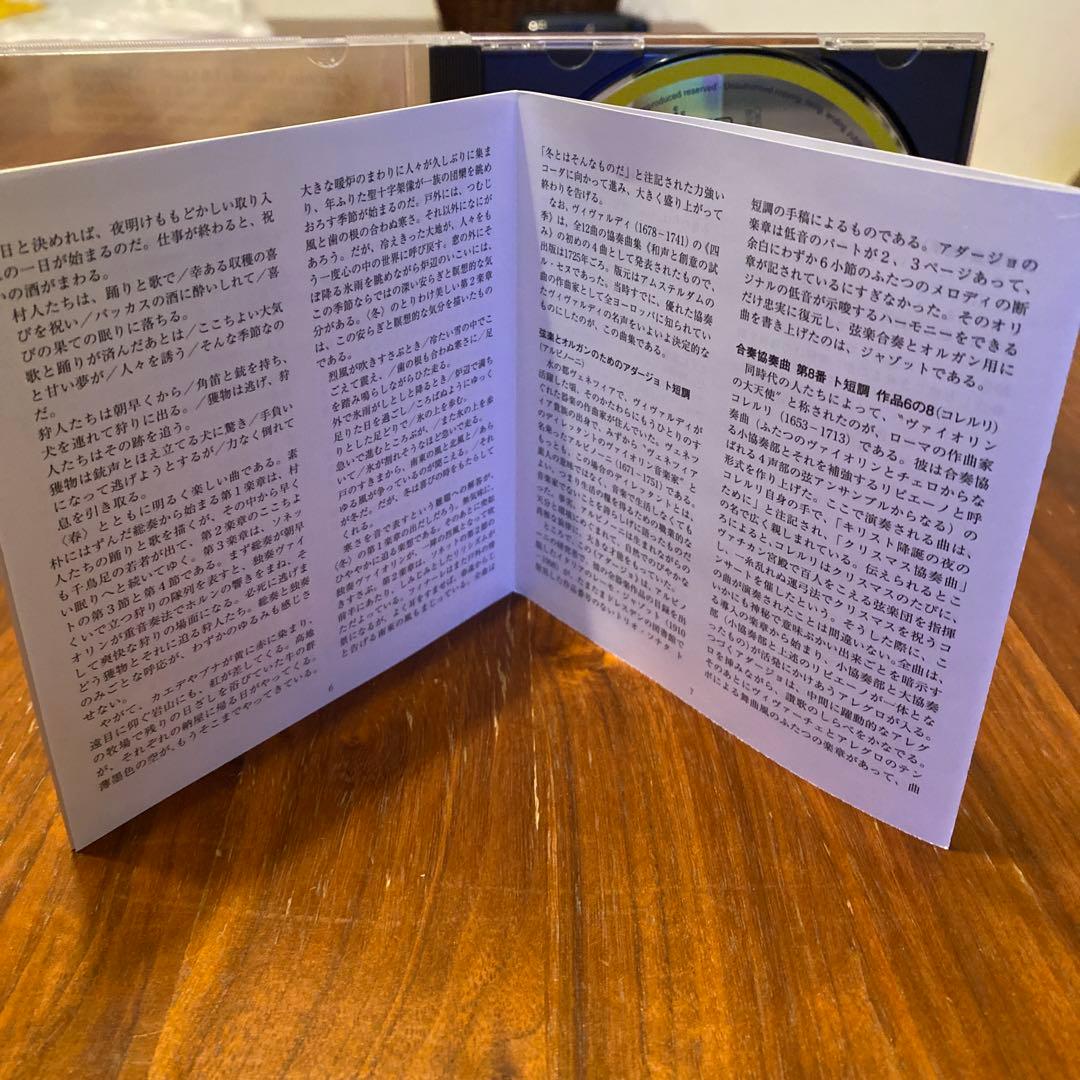 produced reserved · Unauthorized copying, hiring,
日と決めれば、夜明けももどかしい取り入
の一日が始まるのだ。仕事が終わると、祝
の酒がまわる。
村人たちは、踊りと歌で/幸ある収穫の喜
びを祝い/バッカスの酒に酔いしれて/喜
びの果ての眠りに落ちる。
歌と踊りが済んだあとは/ここちよい大気
と甘い夢が/人々を誘う/そんな季節なの
だ。
狩人たちは朝早くから/角笛と銃を持ち、
犬を連れて狩りに出る。/獲物は逃げ、狩
人たちはその跡を追う。
獲物は銃声とほえ立てる犬に驚き/手負い
になって逃げようとするが/力なく倒れて
息を引き取る。
〈春〉とともに明るく楽しい曲である。素
朴にはずんだ総奏から始まる第1楽章は、村
人たちの踊りと歌を描くが、その中から早く
も千鳥足の若者が出て、第2楽章のここちよ
い眠りへと続いてゆく。第3楽章は、ソネッ
トの第3節と第4節である。まず総奏が朝早
くいで立つ狩りの隊列を表すと、独奏ヴァイ
オリンが重音奏法でホルンの響きをまね、そ
して爽快な狩りの場面になる。必死に逃げま
どう獲物とそれに迫る狩人たち。総奏と独奏
のみごとな呼応が、わずかのゆるみも感じさ
せない。
やがて、カエデやブナが黄に赤に染まり、
遠目に仰ぐ岩山にも、紅が差してくる。高地
の牧場で残りの日ざしを浴びていた牛の群
が、それぞれの納屋に帰る日がやってくる。
薄墨色の空が、もうそこまでやってきている。
大きな暖炉のまわりに人々が久しぶりに集ま
り、年ふりた聖十字架像が一族の団欒を眺め
おろす季節が始まるのだ。戸外には、つむじ
風と歯の根の合わぬ寒さ。それ以外になにが
あろう。だが、冷えきった大地が、人々をも
う一度心の中の世界に呼び戻す。窓の外にそ
ぼ降る氷雨を眺めながら炉辺のいこいには、
この季節ならではの深い安らぎと瞑想的な気
分がある。〈冬〉のとりわけ美しい第2楽章
は、この安らぎと瞑想的な気分を描いたもの
である。
烈風が吹きすさぶとき/冷たい雪の中でこ
ごえて震え、/歯の根も合わぬ寒さに/足
を踏み鳴らしながらひた走る。
外で氷雨がしとしとと降るとき/炉辺で満ち
足りた日を過ごし/ころばぬようにゆっく
りとした足どりで/氷の上を歩む。
急いで進むところぶが、/また氷の上を歩
いて/氷が割れそうなほど急いで走る。
戸のすきまから、南東の風と北風と/あら
ゆる風が争っているのが聞こえる。/これ
が冬だ。だが、冬は喜びの時をもたらして
くれる。
寒さを音で表すという難題への解答が、
〈冬〉の第1楽章の出だしだろう。無気味に、
ひややかに迫る楽想である。そのあとに突如
独奏ヴァイオリンが、一陣の烈風となって吹
きすさぶ。第2楽章は、ソネットの第2節の
前半にあたり、しみじみとしたリリシズムが
ただよっている。フィナーレはまた戸外の情
景になるが、よく耳をすませば、春遠からじ
と告げる南東の風もまじっている。全曲は
6
「冬とはそんなものだ」と注記された力強い
コーダに向かって進み、大きく盛り上がって
終わりを告げる。
なお、ヴィヴァルディ(1678－1741)の《四
季》は、全12曲の協奏曲集《和声と創意の試
み》の初めの4曲として発表されたもので、
出版は1725年ごろ。版元はアムステルダムの
ル・セヌであった。当時すでに、優れた協奏
曲の作曲家として全ヨーロッパに知られてい
たヴィヴァルディの名声をいよいよ決定的な
ものにしたのが、この曲集である。
弦楽とオルガンのためのアダージョ ト短調
(アルビノーニ)
水の都ヴェネツィアで、ヴィヴァルディが
活躍した頃、そのかたわらにもうひとりのす
ぐれた器楽の作曲家が住んでいた。ヴェネツ
ィア貴族の出身で、みずから〝ヴェネツィア
のディレッタントのヴァイオリン音楽家〟と
名乗ったアルビノーニ(1671－1751)である。
もっとも、この場合のディレッタントとは、
素人の意味ではなく、音楽で生活しなくても
よい、つまり生活の糧を得るための職業的な
音楽家でないことを誇らしげに語ったものだ
短調の手稿によるものである。アダージョの
楽章は低音のパートが2、3ページあって、
余白にわずか6小節のふたつのメロディの断
章が記されているにすぎなかった。そのオリ
ジナルの低音が示唆するハーモニーをできる
だけ忠実に復元し、弦楽合奏とオルガン用に
曲を書き上げたのは、ジャゾットである。
合奏協奏曲 第8番 ト短調 作品6の8(コレルリ)
同時代の人たちによって、〝ヴァイオリン
の大天使〟と称されたのが、ローマの作曲家
コレルリ(1653－1713)である。彼は合奏協
奏曲(ふたつのヴァイオリンとチェロからな
る小協奏部とそれを補強するリピエーノと呼
ばれる4声部の弦アンサンブルからなる)の
形式を作り上げた。ここで演奏される曲は、
コレルリ自身の手で、「キリスト降誕の夜の
ために」と注記され、「クリスマス協奏曲」
の名で広く親しまれている。伝えられるとこ
ろによると、コレルリはクリスマスのたびに、
ヴァチカン宮殿で百人をこえる弦楽団を指揮
し、一糸乱れぬ運弓法でクリスマスを祝うコ
ンサートを催したという。そうした際に、こ
の曲が演奏されたことは間違いない。全曲は、
いかにも神秘で意味ぶかい出来ごとを暗示す
る導入の楽章から始まり、小協奏部と大協奏
部(小協奏部と上述のリピエーノが一体とな
ったもの)が活発にかけあうアレグロが入る。
つづくアダージョは、中間に躍動的なアレグ
ロを挿みながら、讃歌のしらべをかなでる。
そのあとにヴィヴァーチェとアレグロのテン
ポによる舞曲風のふたつの楽章があって、曲
7